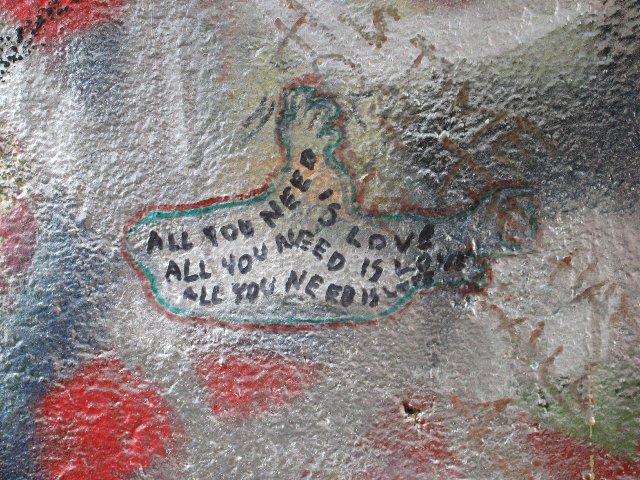 ALL YOU NEED IS LOVE
ALL YOU NEED IS LOVE
ALL YOU NEED IS LOVE